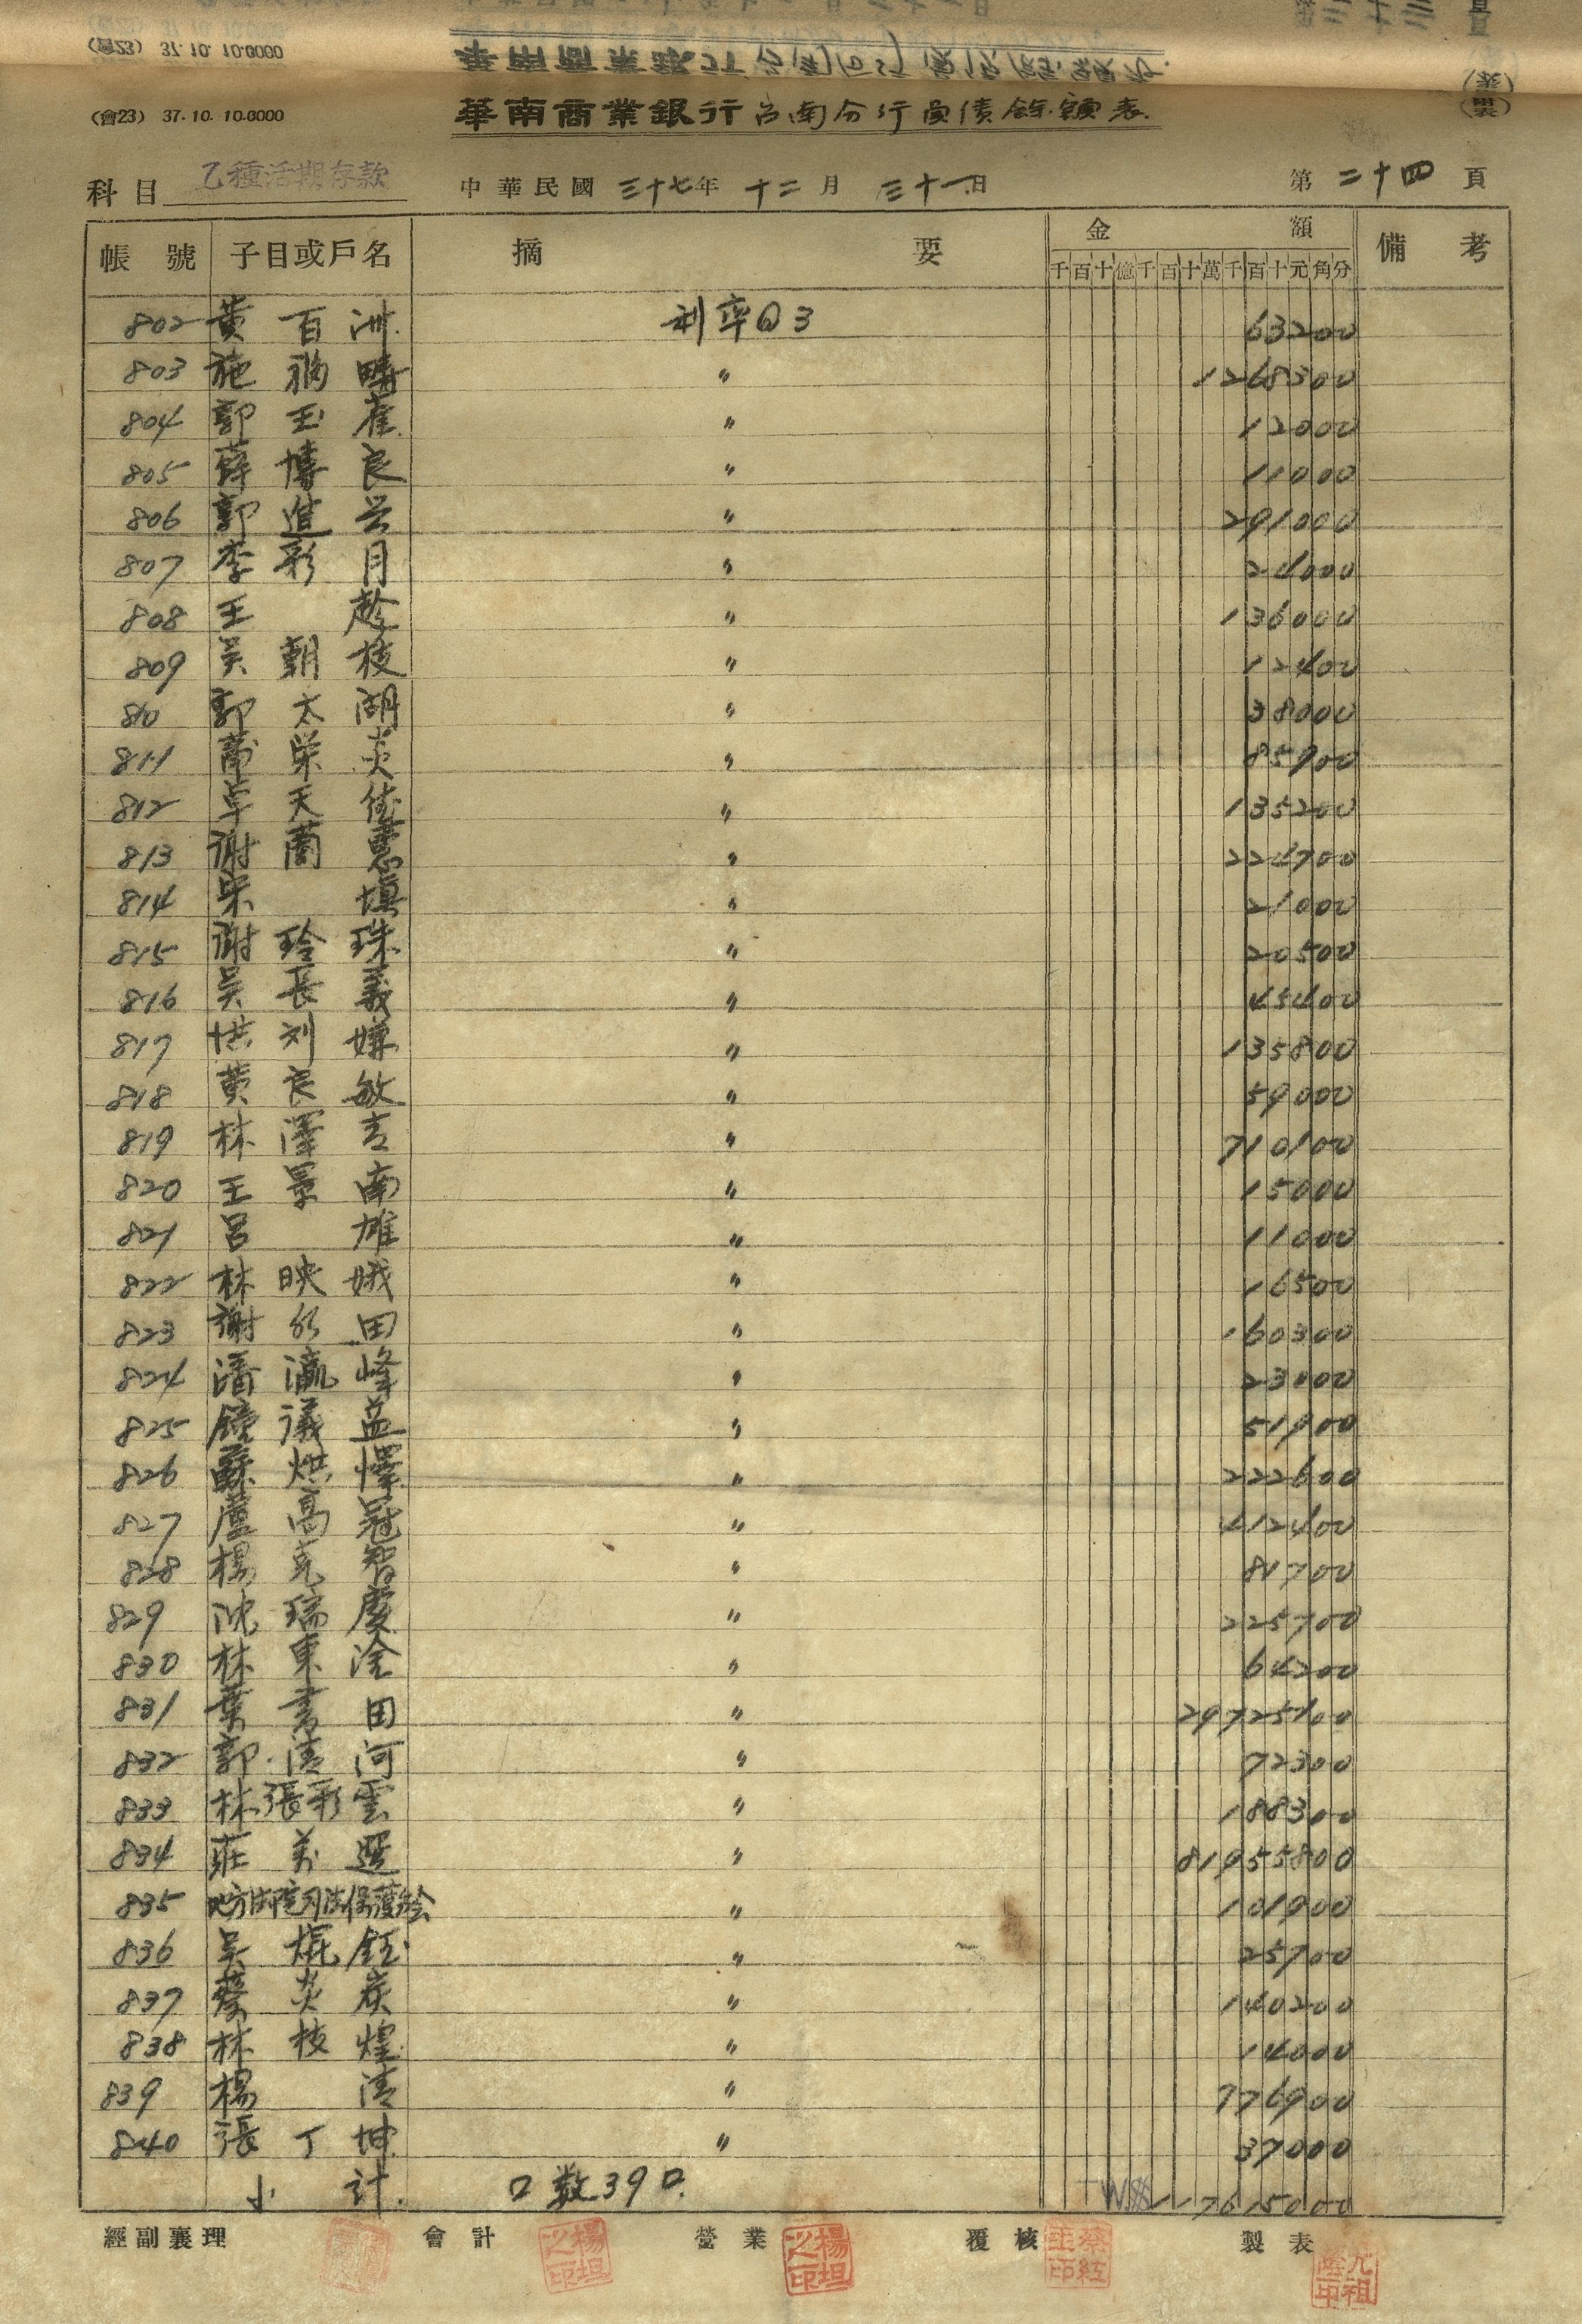 (會23) 37.10.10.6000
華南商業銀行台南分行負債餘額表
(表)
科目 乙種活期存款 中華民國 三十七年 十二月 三十一日 第 二十四 頁
帳號 子目或戶名 摘要 金額 備考
千百十億千百十萬千百十元角分
802 黃百洲 利率日3 63200
803 施 疇 〃 1268300
804 郭玉雀 〃 12000
805 薛博良 〃 11000
806 郭進芸 〃 291000
807 李彩月 〃 24000
808 王趁 〃 136000
809 吳朝枝 〃 12400
810 郭太湖 〃 38000
811 榮炎 〃 85900
812 卓天佑 〃 135200
813 謝蘭惠 〃 224700
814 柴填 〃 21000
815 謝玲珠 〃 20500
816 吳長義 〃 45400
817 洪刘嫌 〃 135800
818 黃良敏 〃 59000
819 林澤吉 〃 710100
820 王景南 〃 15000
821 呂雄 〃 11000
822 林映娥 〃 16500
823 謝 田 〃 160300
824 潘瀛峰 〃 23000
825 議益 〃 51900
826 蘇烘懌 〃 222600
827 蘆高冠 〃 412400
828 楊克智 〃 81700
829 沈瑞慶 〃 225700
830 林東淦 〃 64200
831 葉書田 〃 29725100
832 郭清河 〃 72300
833 林張彩雲 〃 188300
834 莊萬選 〃 81955800
835 地方法院司法保護会 〃 101900
836 吳焜鈺 〃 25700
837 蔡炎炭 〃 140200
838 林枝煌 〃 14000
839 楊清 〃 776900
840 張丁坤 〃 37000
小計 口数39口 TW$117615000
經副襄理 會計 營業 覆核 製表
楊坦之印 楊坦之印 蔡紅玉印